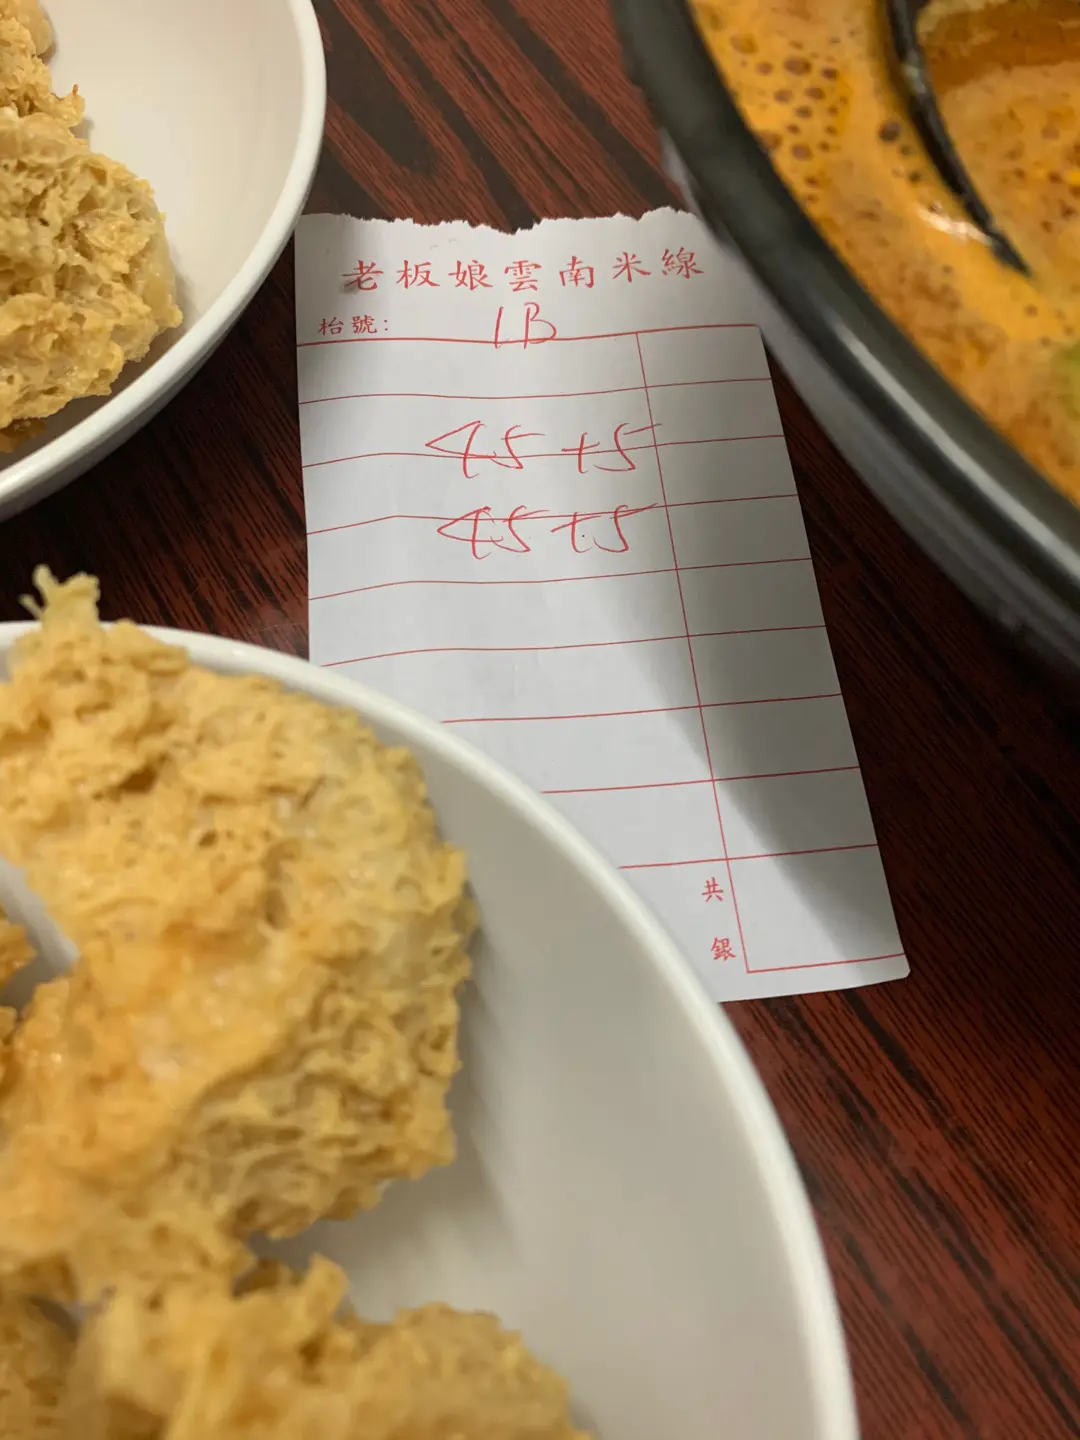 老板娘雲南米線
枱號: 1B
45 +5
45 +5
共
銀